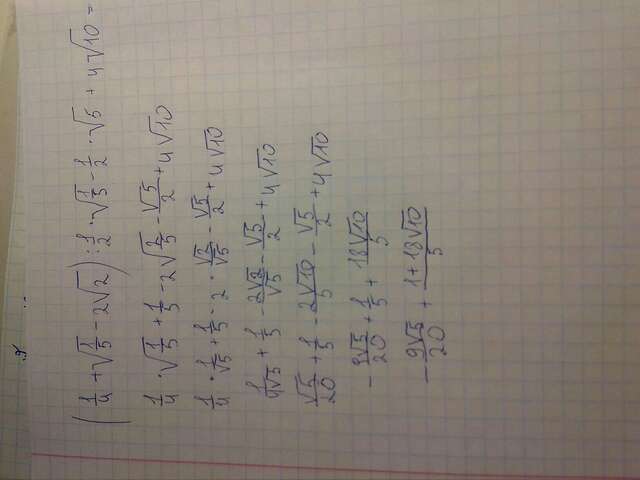 (1/4 + √(1/5) - 2√2) : 1/2 · √(1/5) - 1/2 · √5 + 4√10 =
1/4 · √(1/5) + 1/5 - 2√(2/5) - √5/2 + 4√10
1/4 · 1/√5 + 1/5 - 2 · √2/√5 - √5/2 + 4√10
1/(4√5) + 1/5 - 2√2/√5 - √5/2 + 4√10
√5/20 + 1/5 - 2√10/5 - √5/2 + 4√10
- 9√5/20 + 1/5 + 18√10/5
- 9√5/20 + (1+18√10)/5